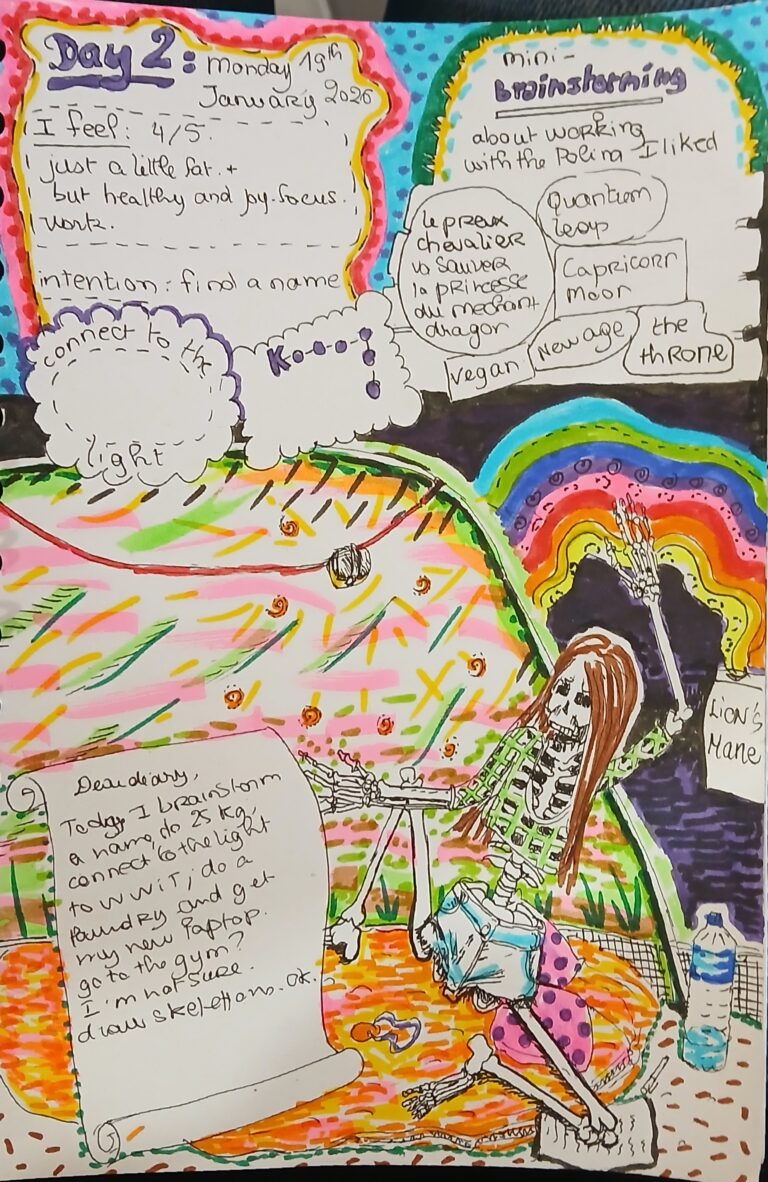 Day 2: Monday 19th
January 2026
I feel: 4/5.
just a little fat. +
but healthy and joy. focus.
work.
intention: find a name
mini-
brainstorming
about working
with the Polina I liked
le preux
chevalier
va sauver
la princesse
du mechant
dragon
Quantum
leap
Capricorn
moon
vegan
New age
the
throne
connect to the
light
K-o-o-o-
Lion's
Mane
Dear diary,
Today I brainstorm
a name, do 25 kg,
connect to the light
to WWIT, do a
laundry and get
my new laptop.
go to the gym?
I'm not sure.
draw skeletons. ok.